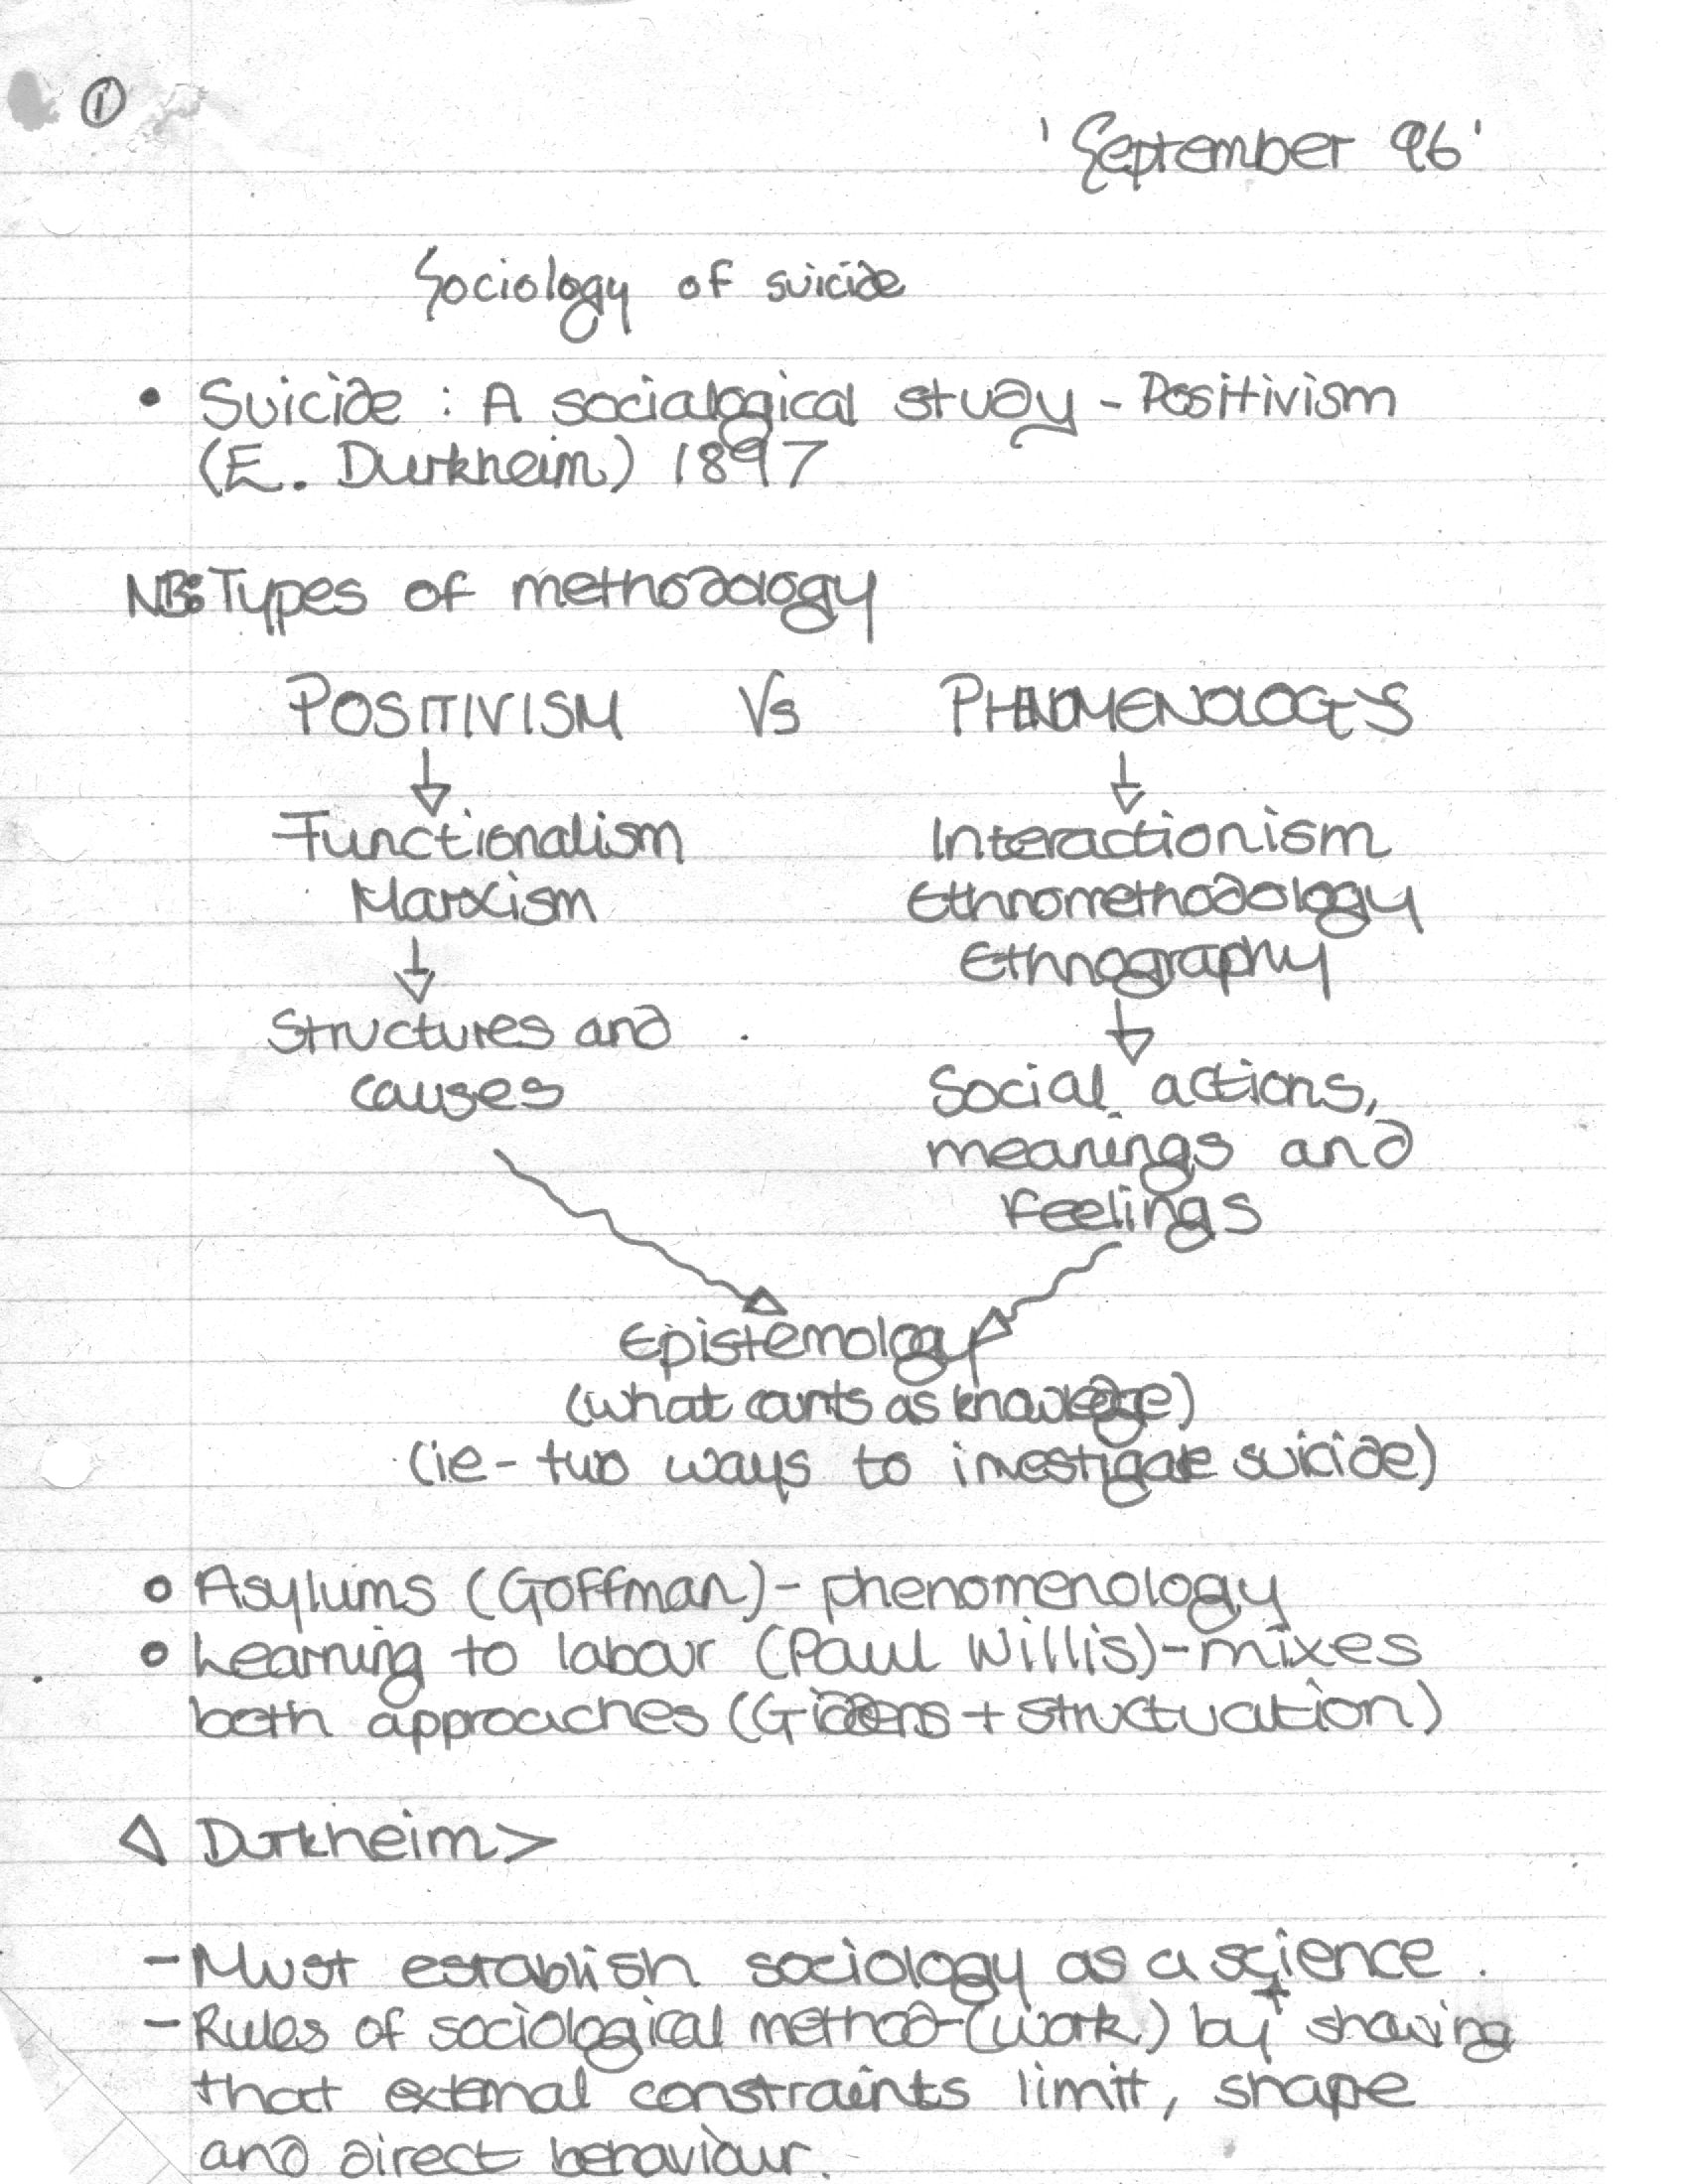 ①
'September 96'
Sociology of suicide
• Suicide : A socialogical study - Positivism
(E. Durkheim) 1897
NB: Types of methodology
POSITIVISM Vs PHENOMENOLOGY
Functionalism Interactionism
Marxism Ethnomethodology
Ethnography
Structures and
causes Social actions,
meanings and
feelings
Epistemology
(what counts as knowledge)
(ie - two ways to investigate suicide)
o Asylums (Goffman) - phenomenology
o Learning to labour (Paul Willis) - mixes
both approaches (Giddens + structuation)
< Durkheim >
- Must establish sociology as a science.
- Rules of sociological method - (work) by + showing
that external constraints limit, shape
and direct behaviour.